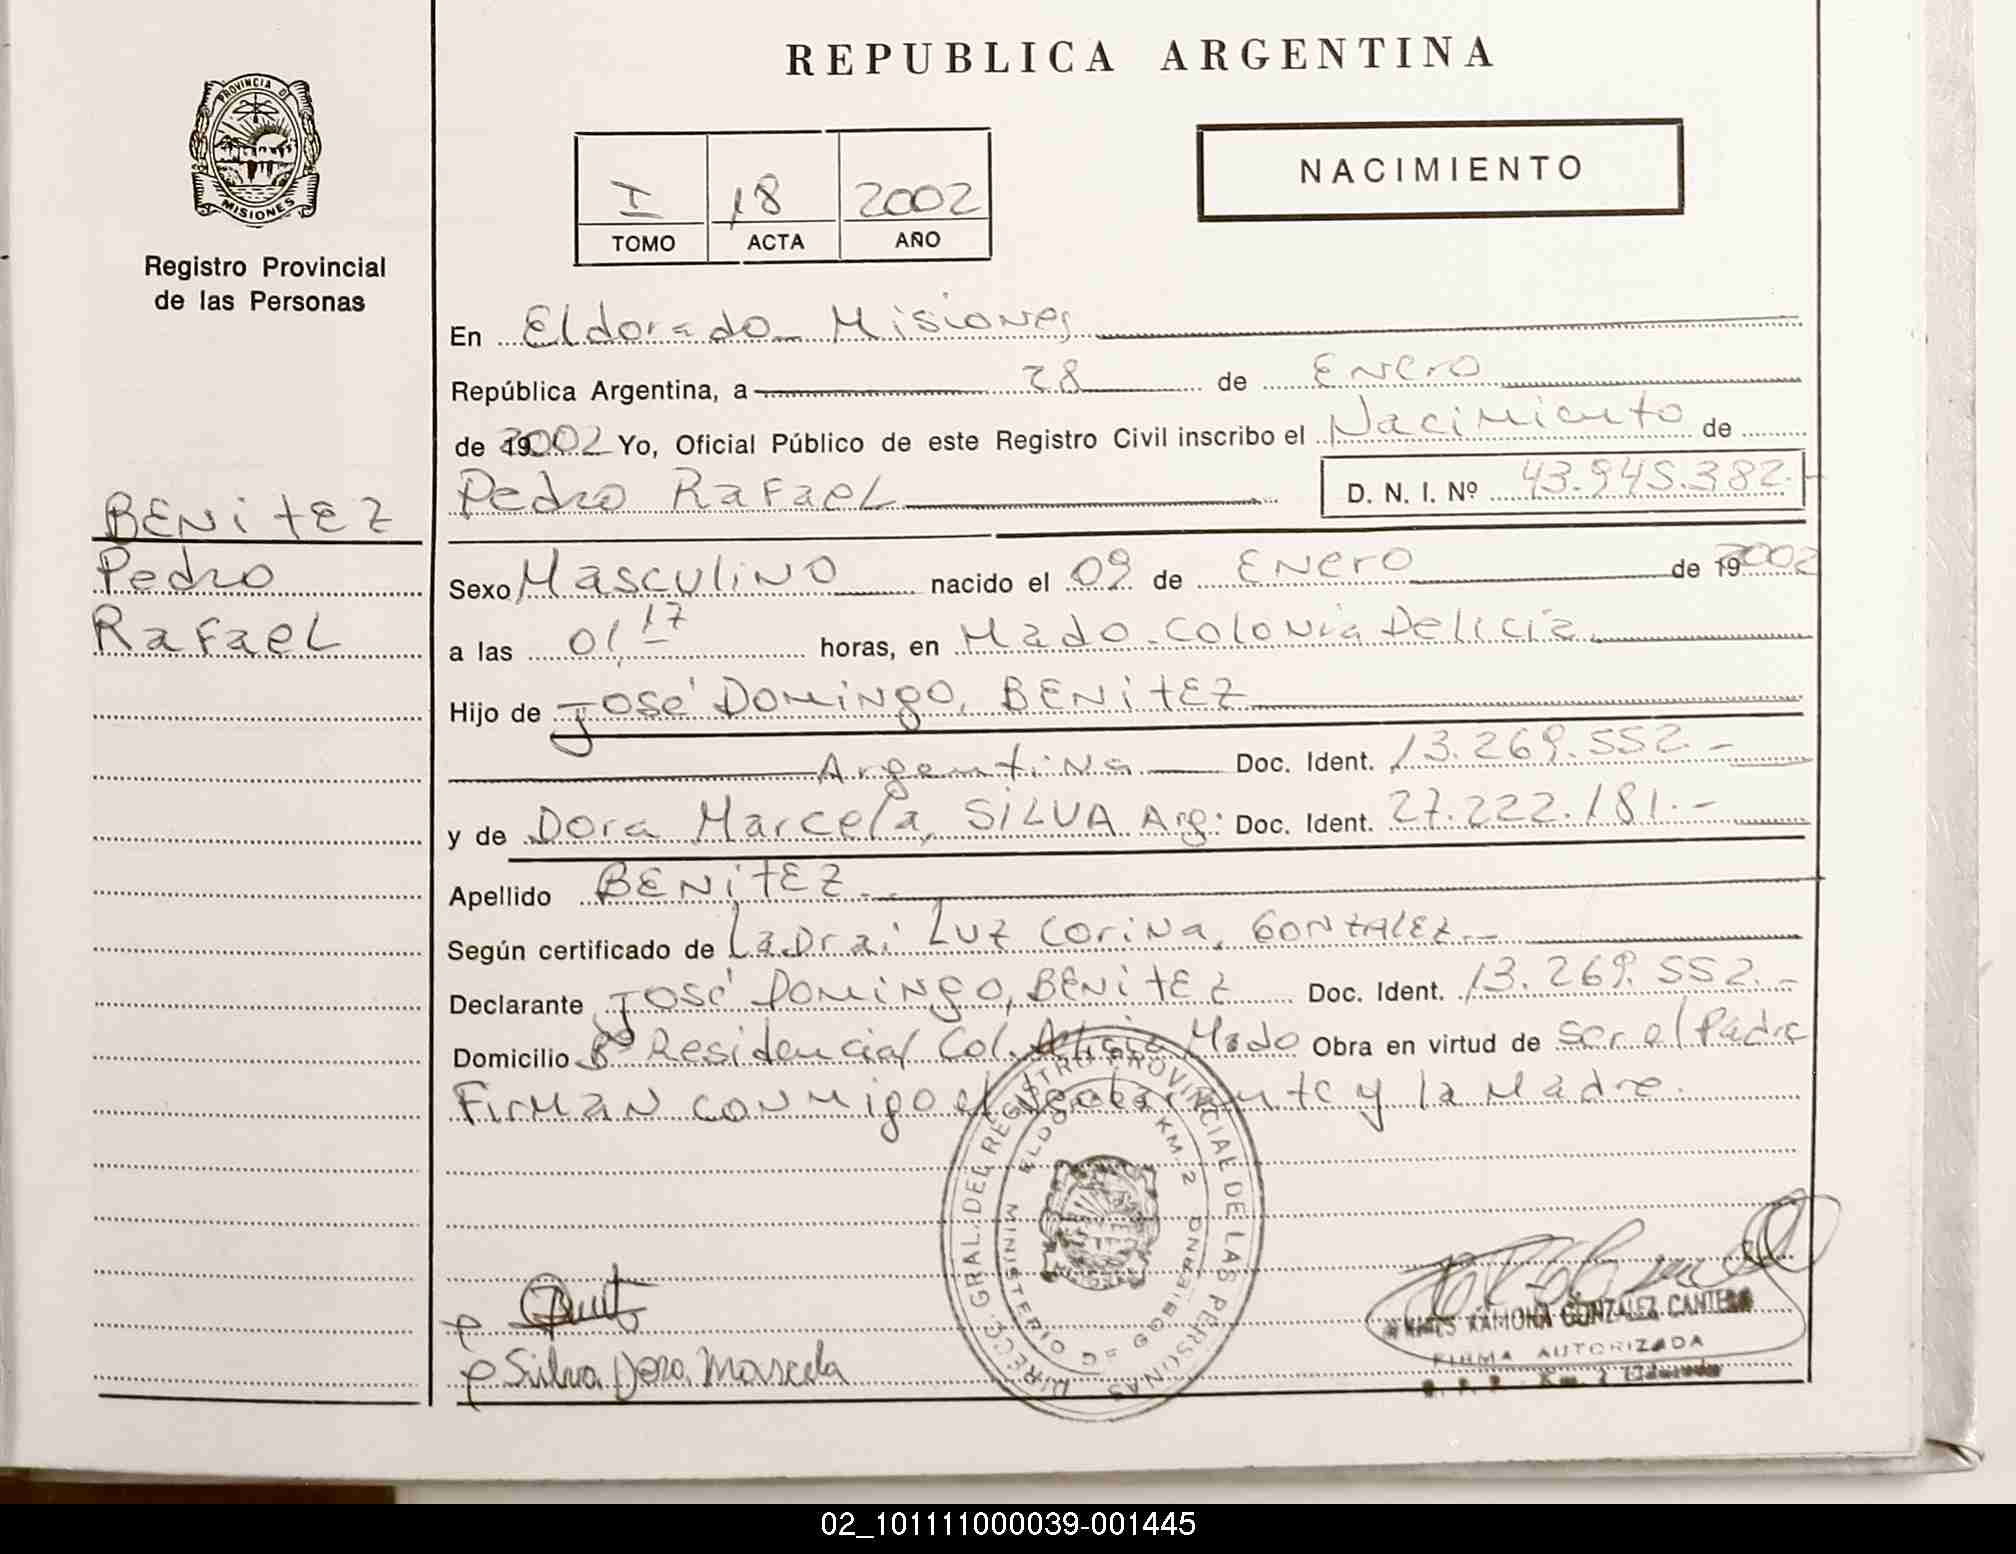 REPUBLICA ARGENTINA
PROVINCIA D
MISIONES
Registro Provincial
de las Personas
I 18 2002
TOMO ACTA AÑO
NACIMIENTO
En Eldorado Misiones
República Argentina, a 28 de Enero
de 2002 Yo, Oficial Público de este Registro Civil inscribo el Nacimiento de
Pedro Rafael D. N. I. Nº 43.945.382.-
BENITEZ
Pedro
Rafael
Sexo Masculino nacido el 09 de Enero de 2002
a las 01,17 horas, en Mado-Colonia Delicia
Hijo de José Domingo, BENITEZ
Argentina Doc. Ident. 13.269.552.-
y de Dora Marcela, SILVA Arg: Doc. Ident. 27.222.181.-
Apellido BENITEZ.-
Según certificado de Luz Corina, GONZALEZ.-
Declarante José Domingo, BENITEZ Doc. Ident. 13.269.552.-
Domicilio Bº Residencial Col. Mado Obra en virtud de ser el Padre
Firman conmigo el y la Madre.
DIRECC. GRAL. DEL REGISTRO PROVINCIAL DE LAS PERSONAS
MINISTERIO DE GOBIERNO
KM. 2
Silva Dora Marcela
RAMONA GONZALEZ CANTERO
FIRMA AUTORIZADA
02_101111000039-001445